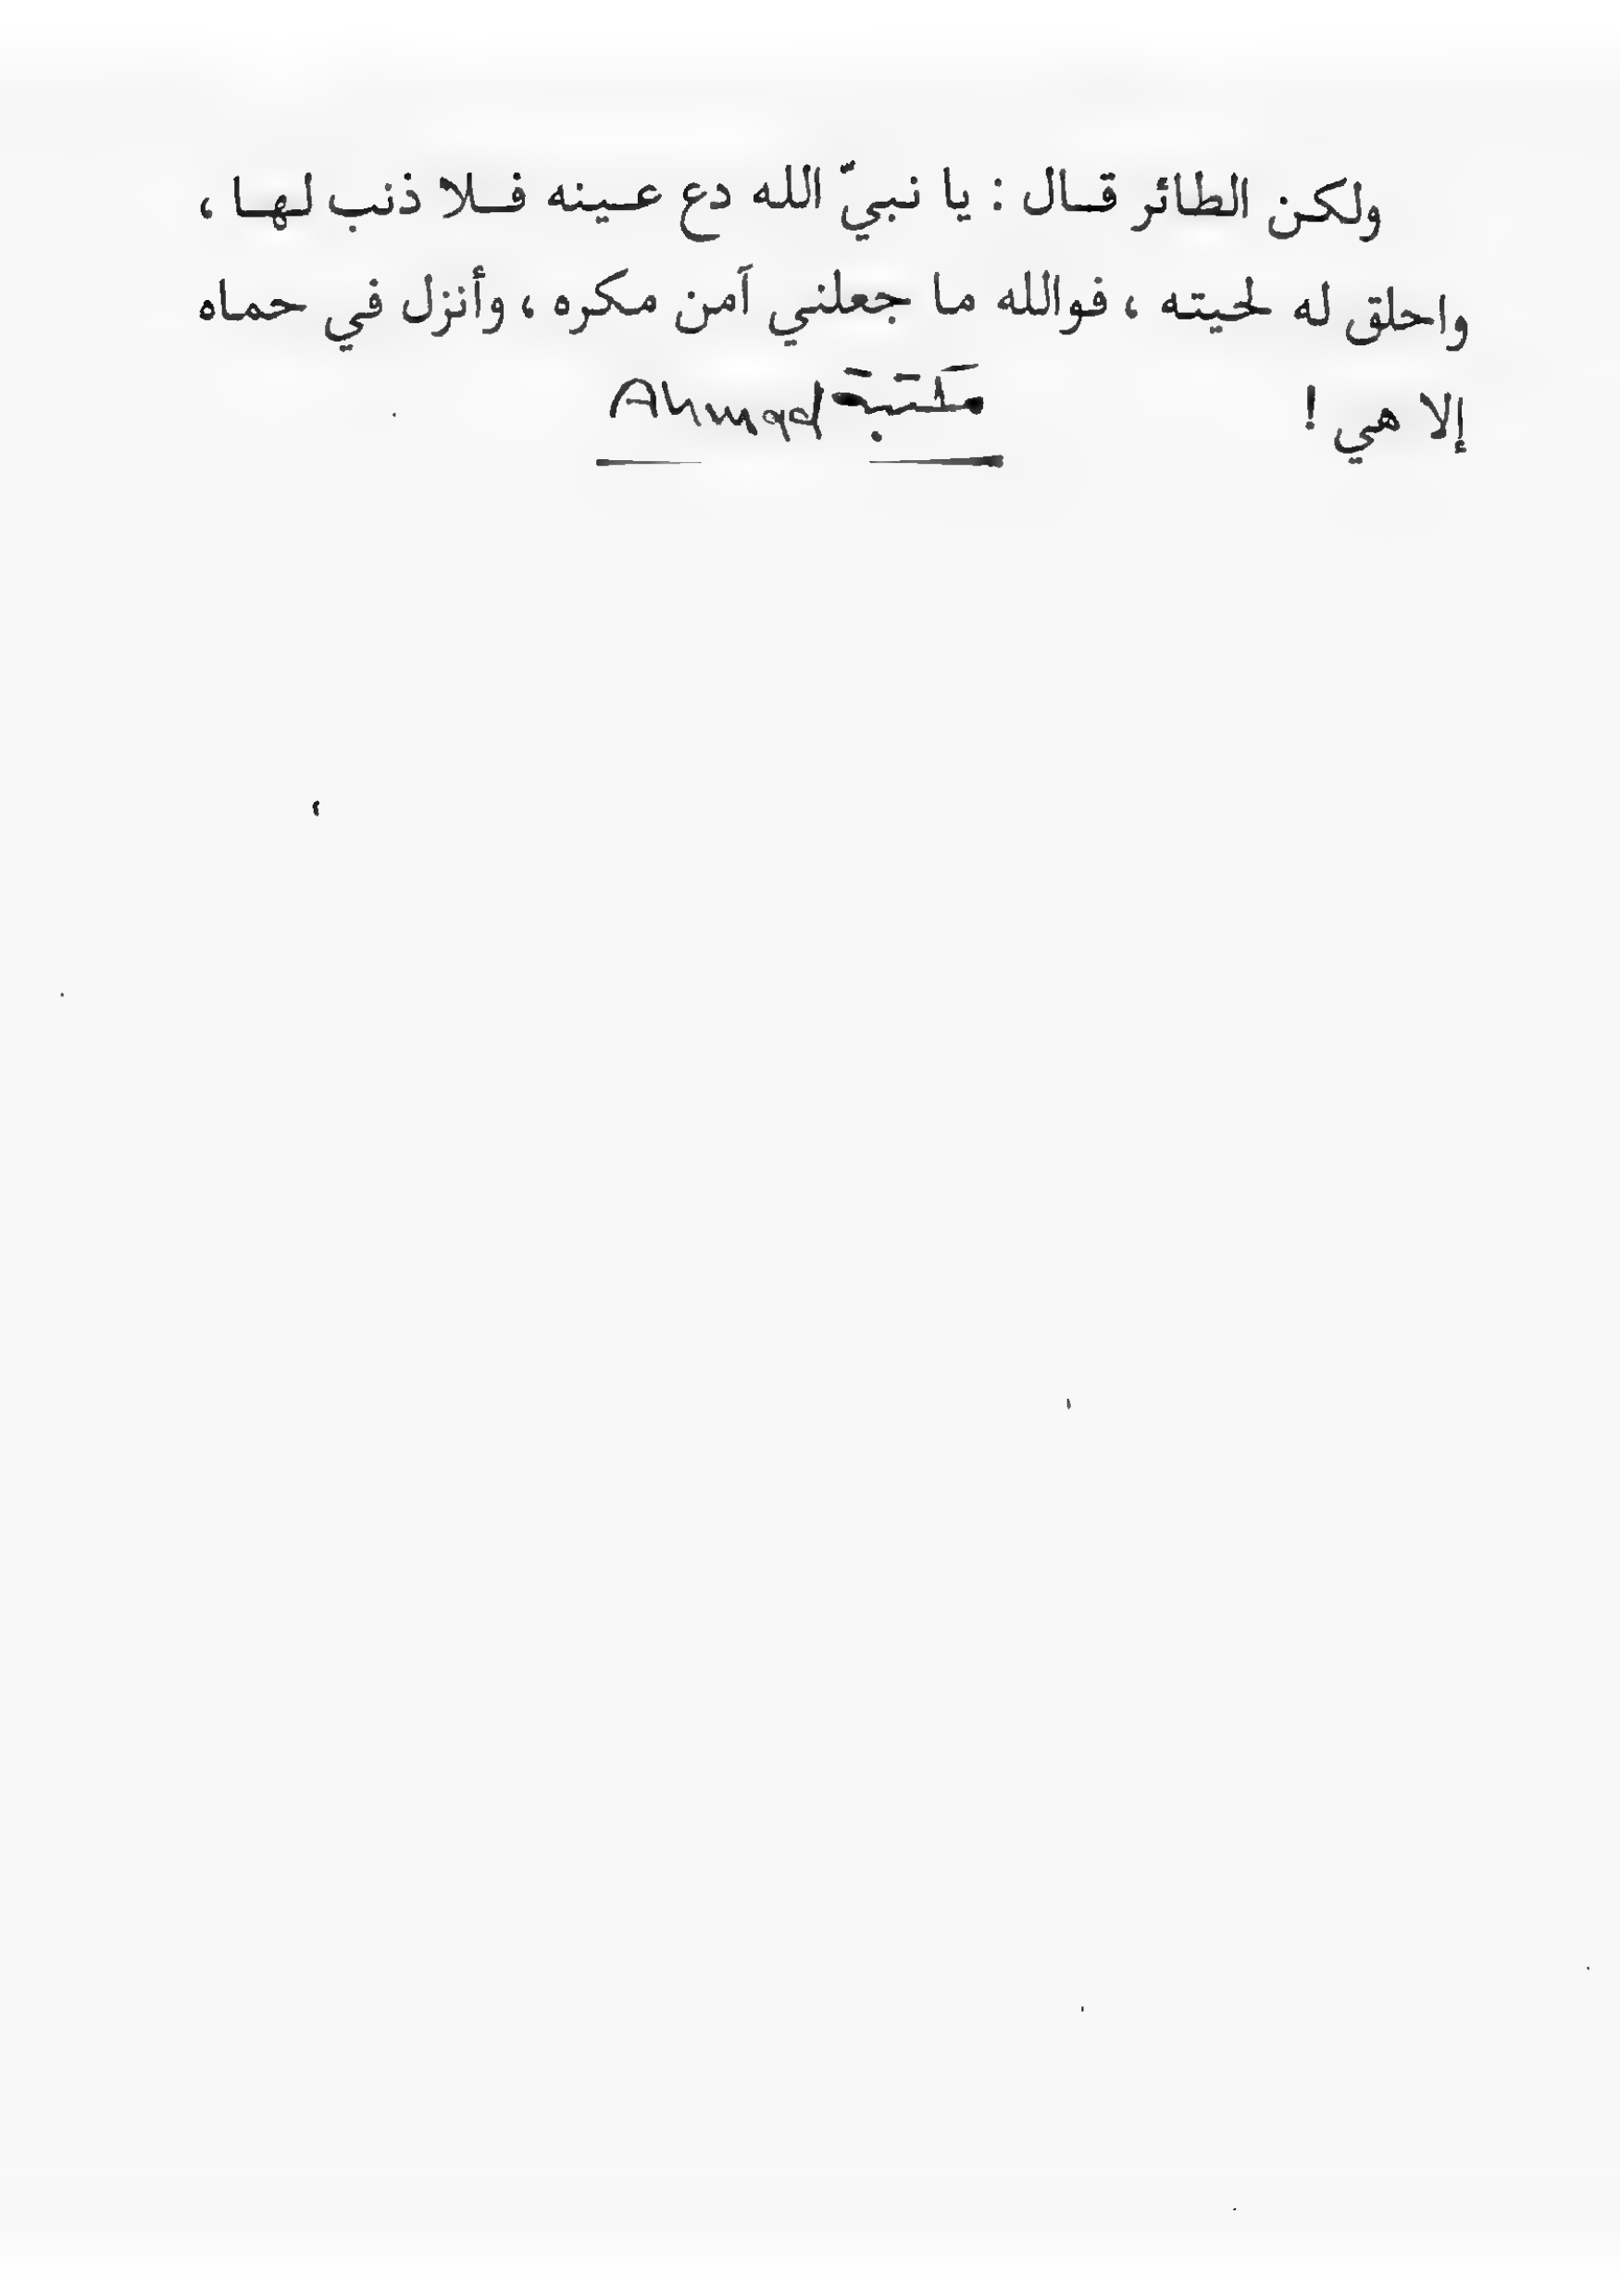 ولكن الطائر قال : يا نبيّ الله دع عينه فلا ذنب لها ،
واحلق له لحيته ، فوالله ما جعلني آمن مكره ، وأنزل في حماه
إلا هي !
مكتبة Ahmad